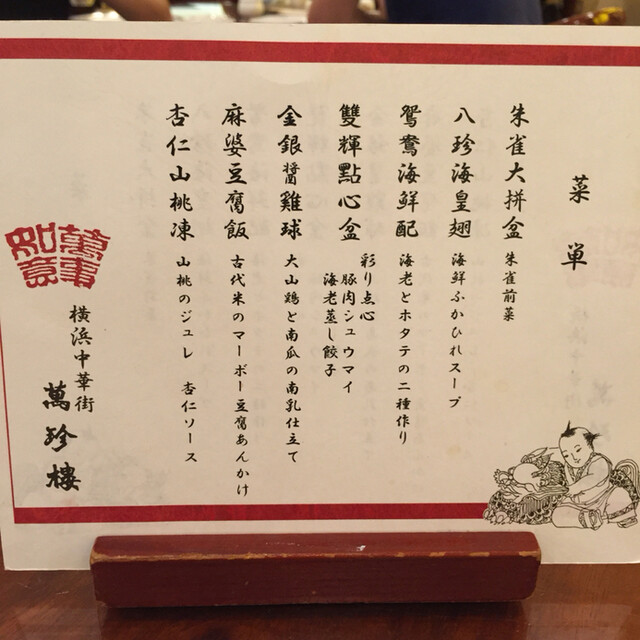 菜単
朱雀大拼盆 朱雀前菜
八珍海皇翅 海鮮ふかひれスープ
鴛鴦海鮮配 海老とホタテの二種作り
雙輝點心盆 彩り点心
豚肉シュウマイ
海老蒸し餃子
金銀醤雞球 大山鶏と南瓜の南乳仕立て
麻婆豆腐飯 古代米のマーボー豆腐あんかけ
杏仁山桃凍 山桃のジュレ 杏仁ソース
横浜中華街
萬珍樓
萬事如意